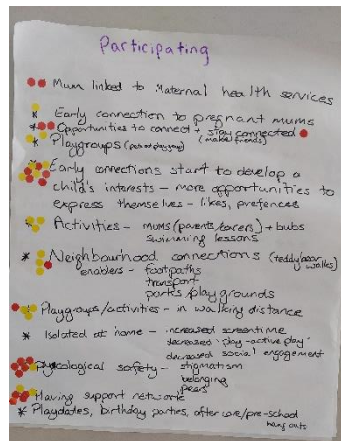 Participating
Mum linked to Maternal health services
* Early connection to pregnant mums
* Opportunities to connect + stay connected
* Playgroups (make friends)
* Early connections start to develop a
child's interests – more opportunities to
express themselves – likes, prefences
Activities – mums (parents/carers) + bubs
swimming lessons
* Neighbourhood connections (teddy bear walks)
enablers – footpaths
transport
parks/playgrounds
Playgroups/activities – in walking distance
* Isolated at home – increased screentime
decreased 'play-active play'
decreased social engagement
safety – stigmatism
belonging
peers
Having support network
* Playdates, birthday parties, after care/pre-school
hang outs